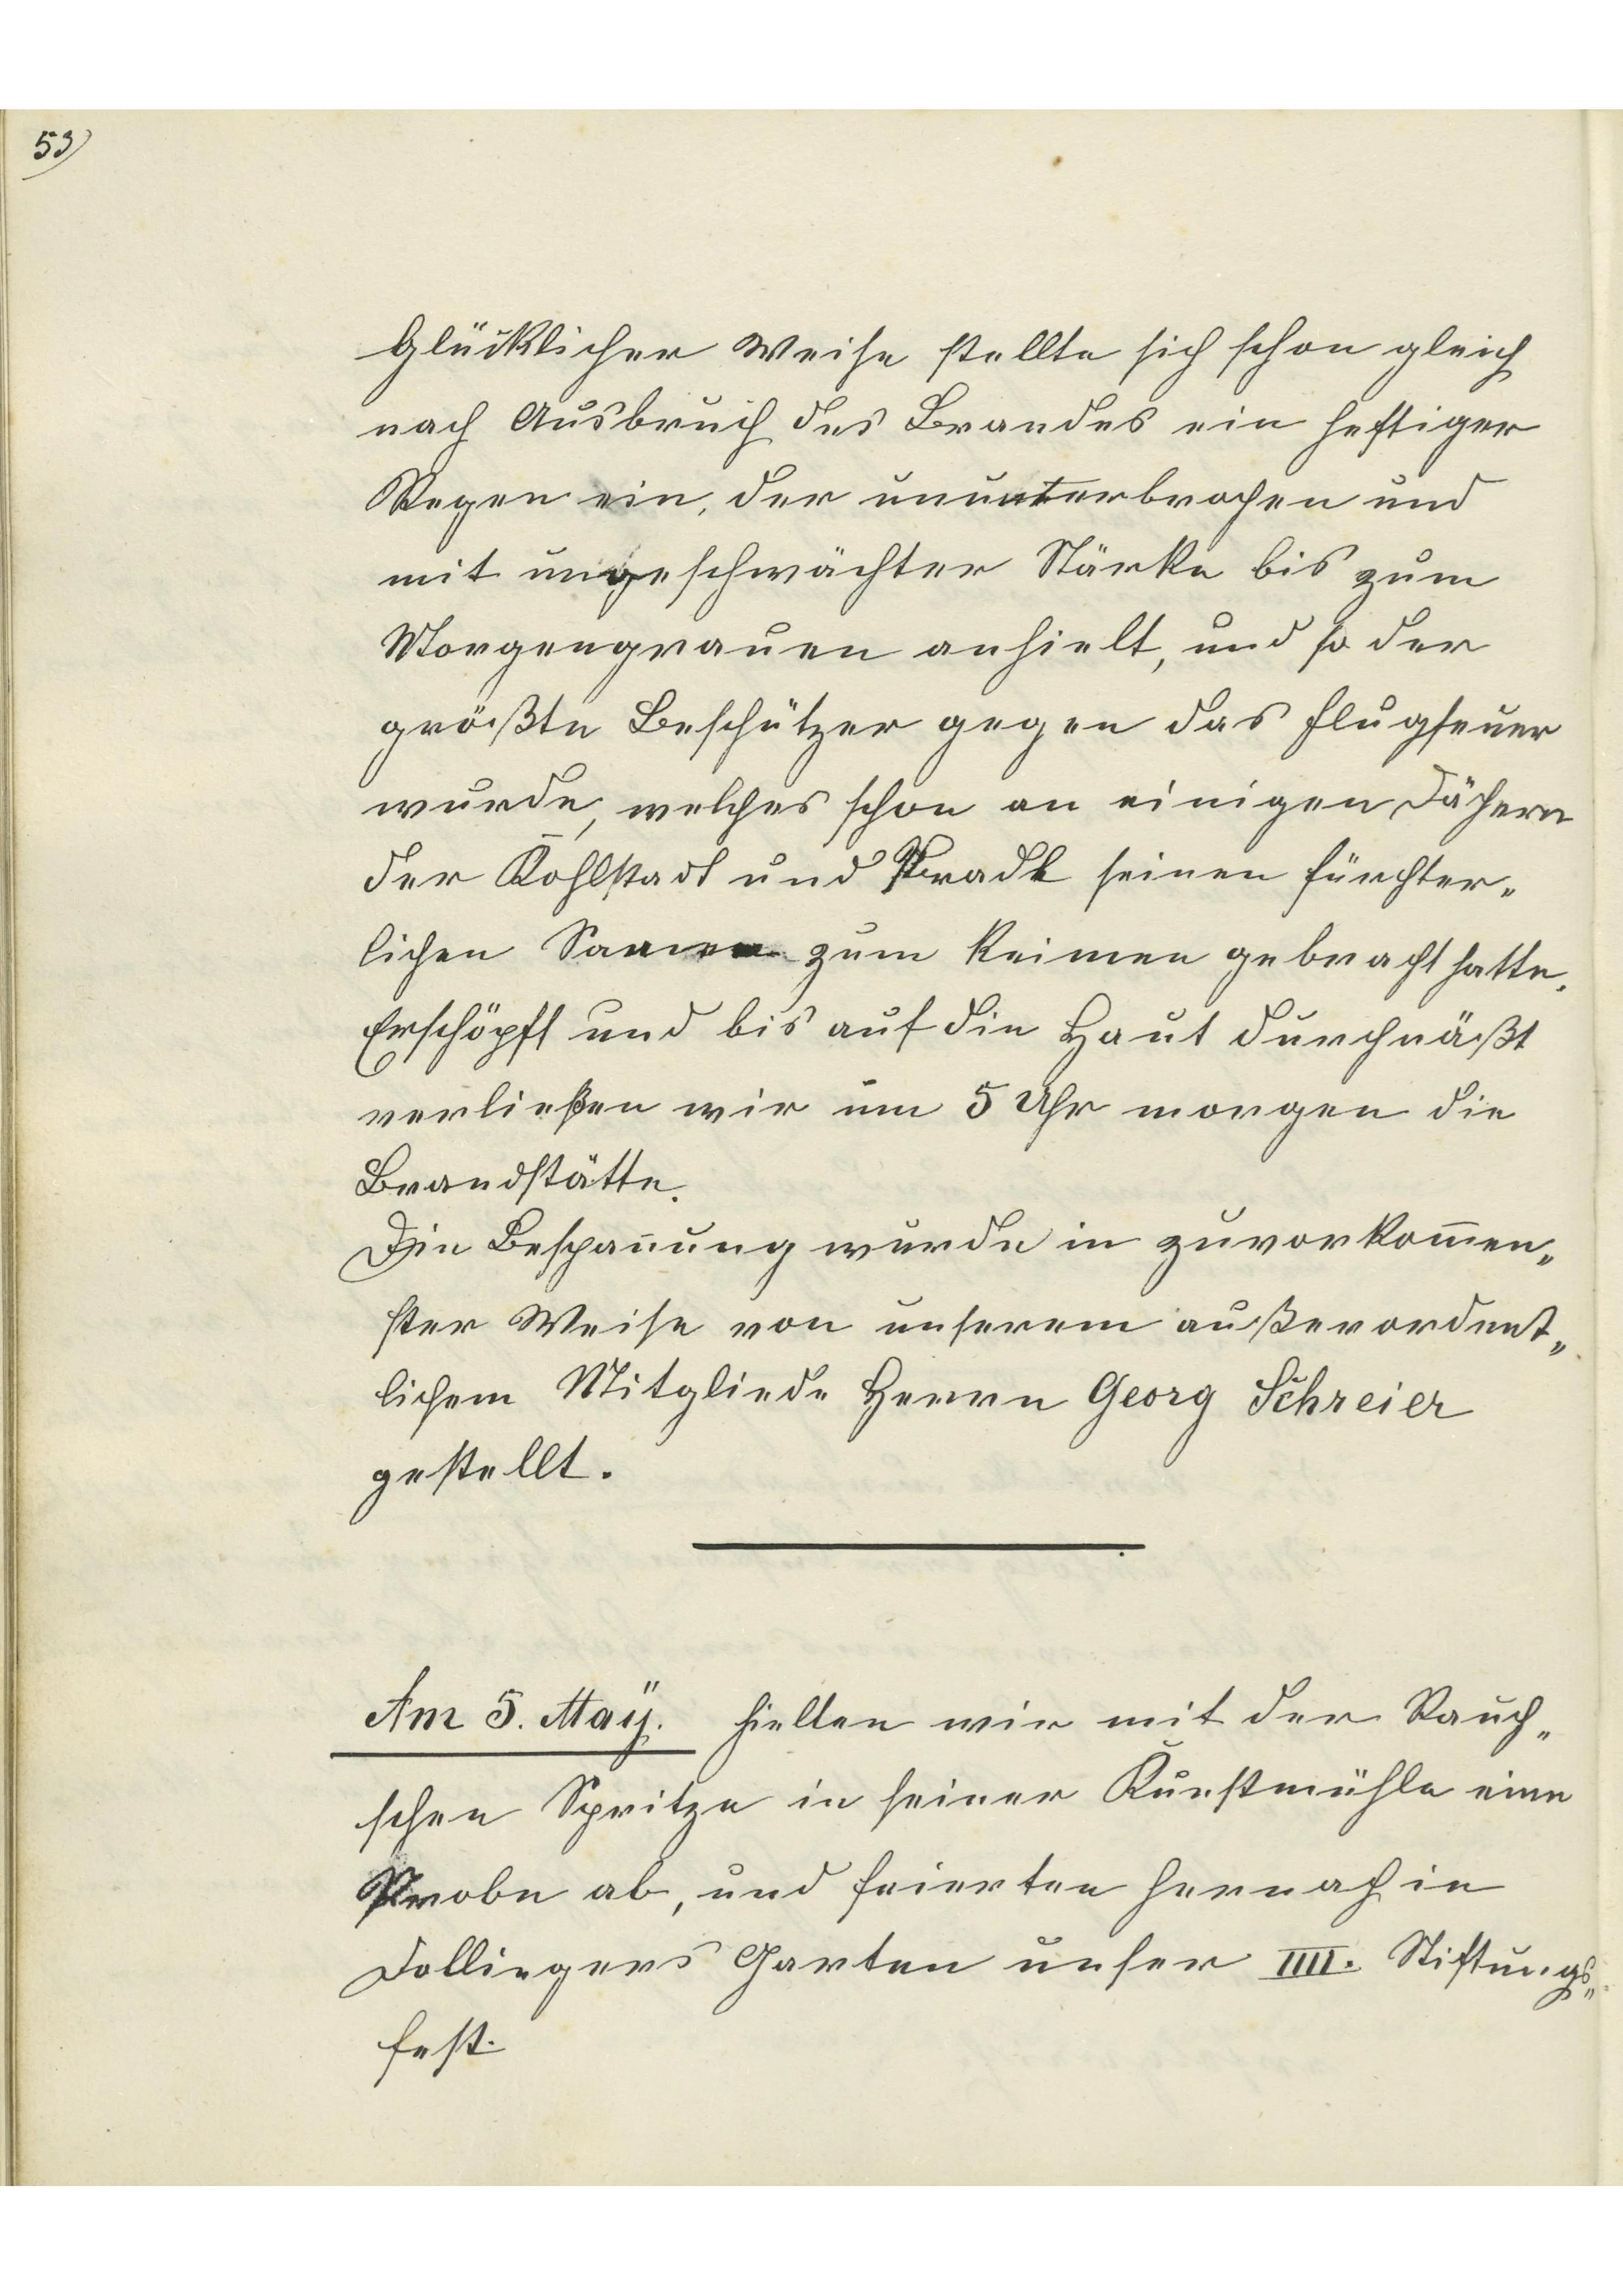 53)
Glücklicher Weise stellte sich schon gleich
nach Ausbruch des Brandes ein heftiger
Regen ein, der ununterbrochen und
mit ungeschwächter Stärke bis zum
Morgengrauen anhielt, und so der
größte Beschützer gegen das Flugfeuer
wurde, welches schon an einigen Dächern
der Kohlstadt und Pradl seinen fürchter„
lichen Samen zum Keimen gebracht hatte.
Erschöpft und bis auf die Haut durchnäßt
verließen wir um 5 Uhr morgen die
Brandstätte.
Die Bespan̄ung wurde in zuvorkom̄en„
ster Weise von unserem außerordent„
lichem Mitgliede Herrn Georg Schreier
gestellt.
Am 5. Maÿ. hielten wir mit der Rauch„
schen Spritze in seiner Kunstmühle eine
Probe ab, und feierten hernach in
Dollingers Garten unser IIII. Stiftungs„
fest.